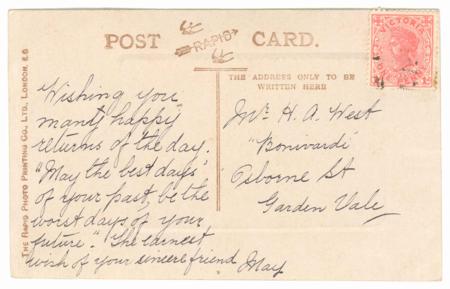 POST CARD.
RAPID
THE ADDRESS ONLY TO BE
WRITTEN HERE
VICTORIA
ONE PENNY
THE RAPID PHOTO PRINTING CO., LTD., LONDON, E.C.
Wishing you
many happy
returns of the day.
"May the best days
of your past, be the
worst days of your
future". The earnest
wish of your sincere friend May
Mr H. A. West
"Bonivardi"
Osborne St
Garden Vale